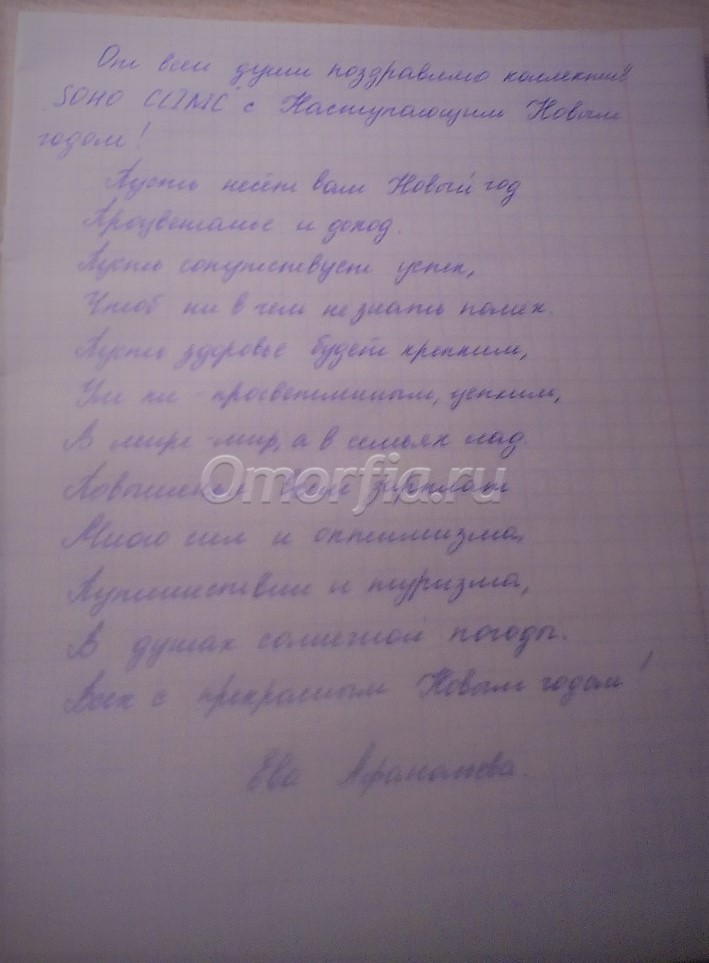 От всей души поздравляю коллектив
"SOHO CLINIC" с Наступающим Новым
годом!
Пусть несёт вам Новый год
Процветанье и доход.
Пусть сопутствует успех,
Чтоб ни в чём не знать помех.
Пусть здоровье будет крепким,
Ум пл - просветлённым, цепким,
В мире - мир, а в семьях лад.
Повышения всем зарплат
Omorfia.ru
Много сил и оптимизма,
Путешествий и туризма,
В душах солнечной погоды.
Всех с прекрасным Новым годом!
Ева Афанасьева.